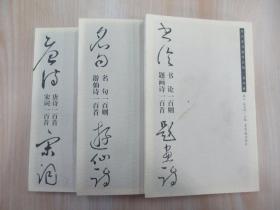 唐诗
唐诗一百首
宋词一百首
宋词
名句
名句一百则
游仙诗一百首
游仙诗
书论
书论一百则
题画诗一百首
题画诗